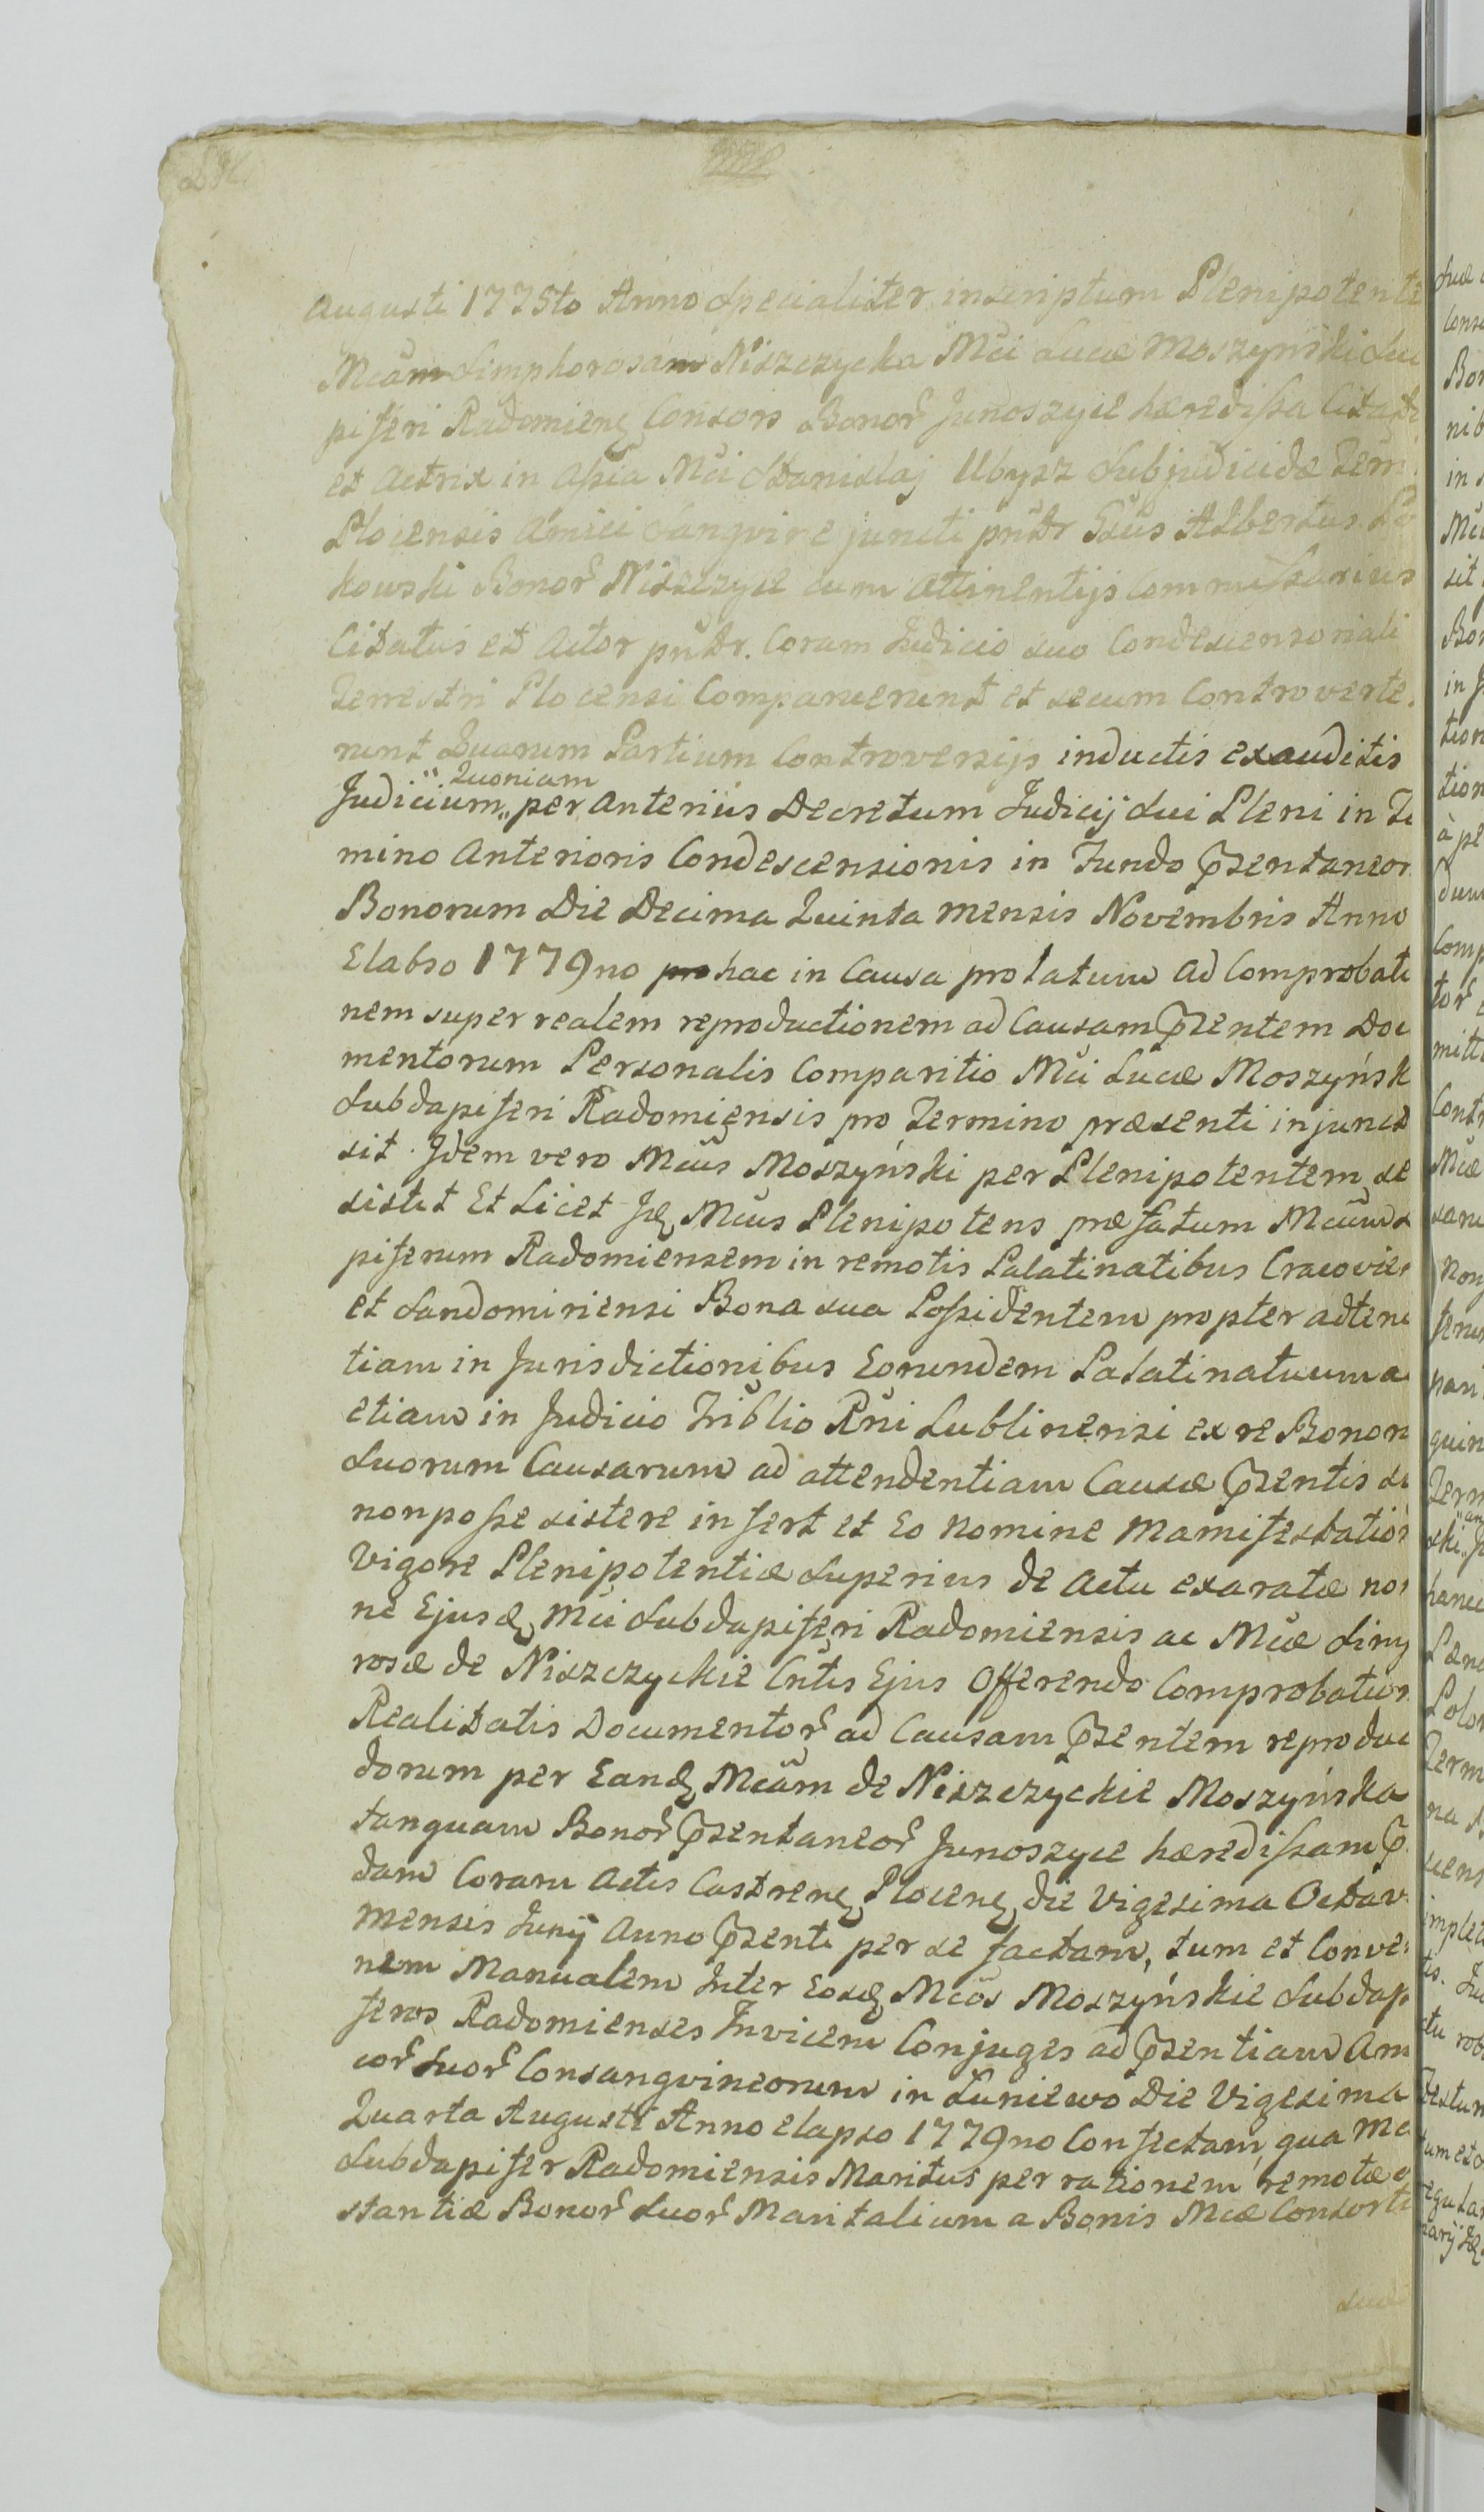 Augusti 1775to Anno Specialiter inscriptum Plenipotente
Mcam Simphorosam Niszczycka Mci Lucæ Moszyński Sub
piferi Radomienẽ Consors Bonor̃ Junoszyce hæredissa Citata
et Actrix in Assia Mci Stanislaj Ubysz Subjudicidæ Terr̃
Plocensis Amici Sangvine juncti pñtr Gsus Albertus
kowski Bonor̃ Niszczyce cum attinentijs Commissarius
Citatus et Actor pñtr. Coram Judicio suo Condescensoriali
Terrestri Plocensi Comparuerunt et secum Controverte-
runt Quarum Partium Controversijs inductis exauditis
Quoniam
Judicium,, per Anterius Decretum Judicij sui Pleni in Te
mino Anterioris Condescensionis in Fundo P̃zentaneor
Bonorum Die Decima Quinta mensis Novembris Anno
Elabso 1779no pro hac in Causa prolatum ad Comprobatio
nem super realem reproductionem ad Causam P̃zentem Docu
mentorum Personalis Comparitio Mci Lucæ Moszyńsk
Subdapiferi Radomiensis pro Termino præsenti injuncta
sit. Jdem vero Mcus Moszyński per Plenipotentem se
sistit Et Licet Jdẽ Mcus Plenipotens præfatum Mcum S
piferum Radomiensem in remotis Palatinatibus Cracovien
et Sandomiriensi Bona sua Possidentem propter adten
tiam in Jurisdictionibus Eorundem Palatinatuum a
etiam in Judicio Triblio Rñi Lublinensi ex re Bonor
Suorum Causarum ad attendentiam Causæ P̃zentis se
non posse sistere infert et Eo Nomine Mamifestation
Vigore Plenipotentiæ Superius de Actu exaratæ no
ne Ejusdẽ Mci Subdapiferi Radomiensis ac Mcæ Simp
rosæ de Niszczyckie Cñtis Ejus Offerendo Comprobation
Realitatis Documentor̃ ad Causam P̃zentem reproduc
dorum per Eandẽ Mcam de Niszczyckie Moszyńska
tanquam Bonor̃ P̃zentaneor̃ Junoszyce hæredissam P̃
dam Coram Actis Castrenẽ Plocenẽ die Vigesima Octav
mensis Junij Anno P̃zenti per se factam, tum et Conve
nem Manualem Inter Eosdẽ Mcos Moszyńskie Subdap
feros Radomienses Invicem Conjuges ad P̃zentiam Am
cor̃ Suor̃ Consangvineorum in Luniewo Die Vigesima
Quarta Augusti Anno elapso 1779no Confectam, qua Mc
Subdapifer Radomiensis Maritus per rationem remotæ
stantiæ Bonor̃ Suor̃ Maritalium a Bonis Mcæ Consorti